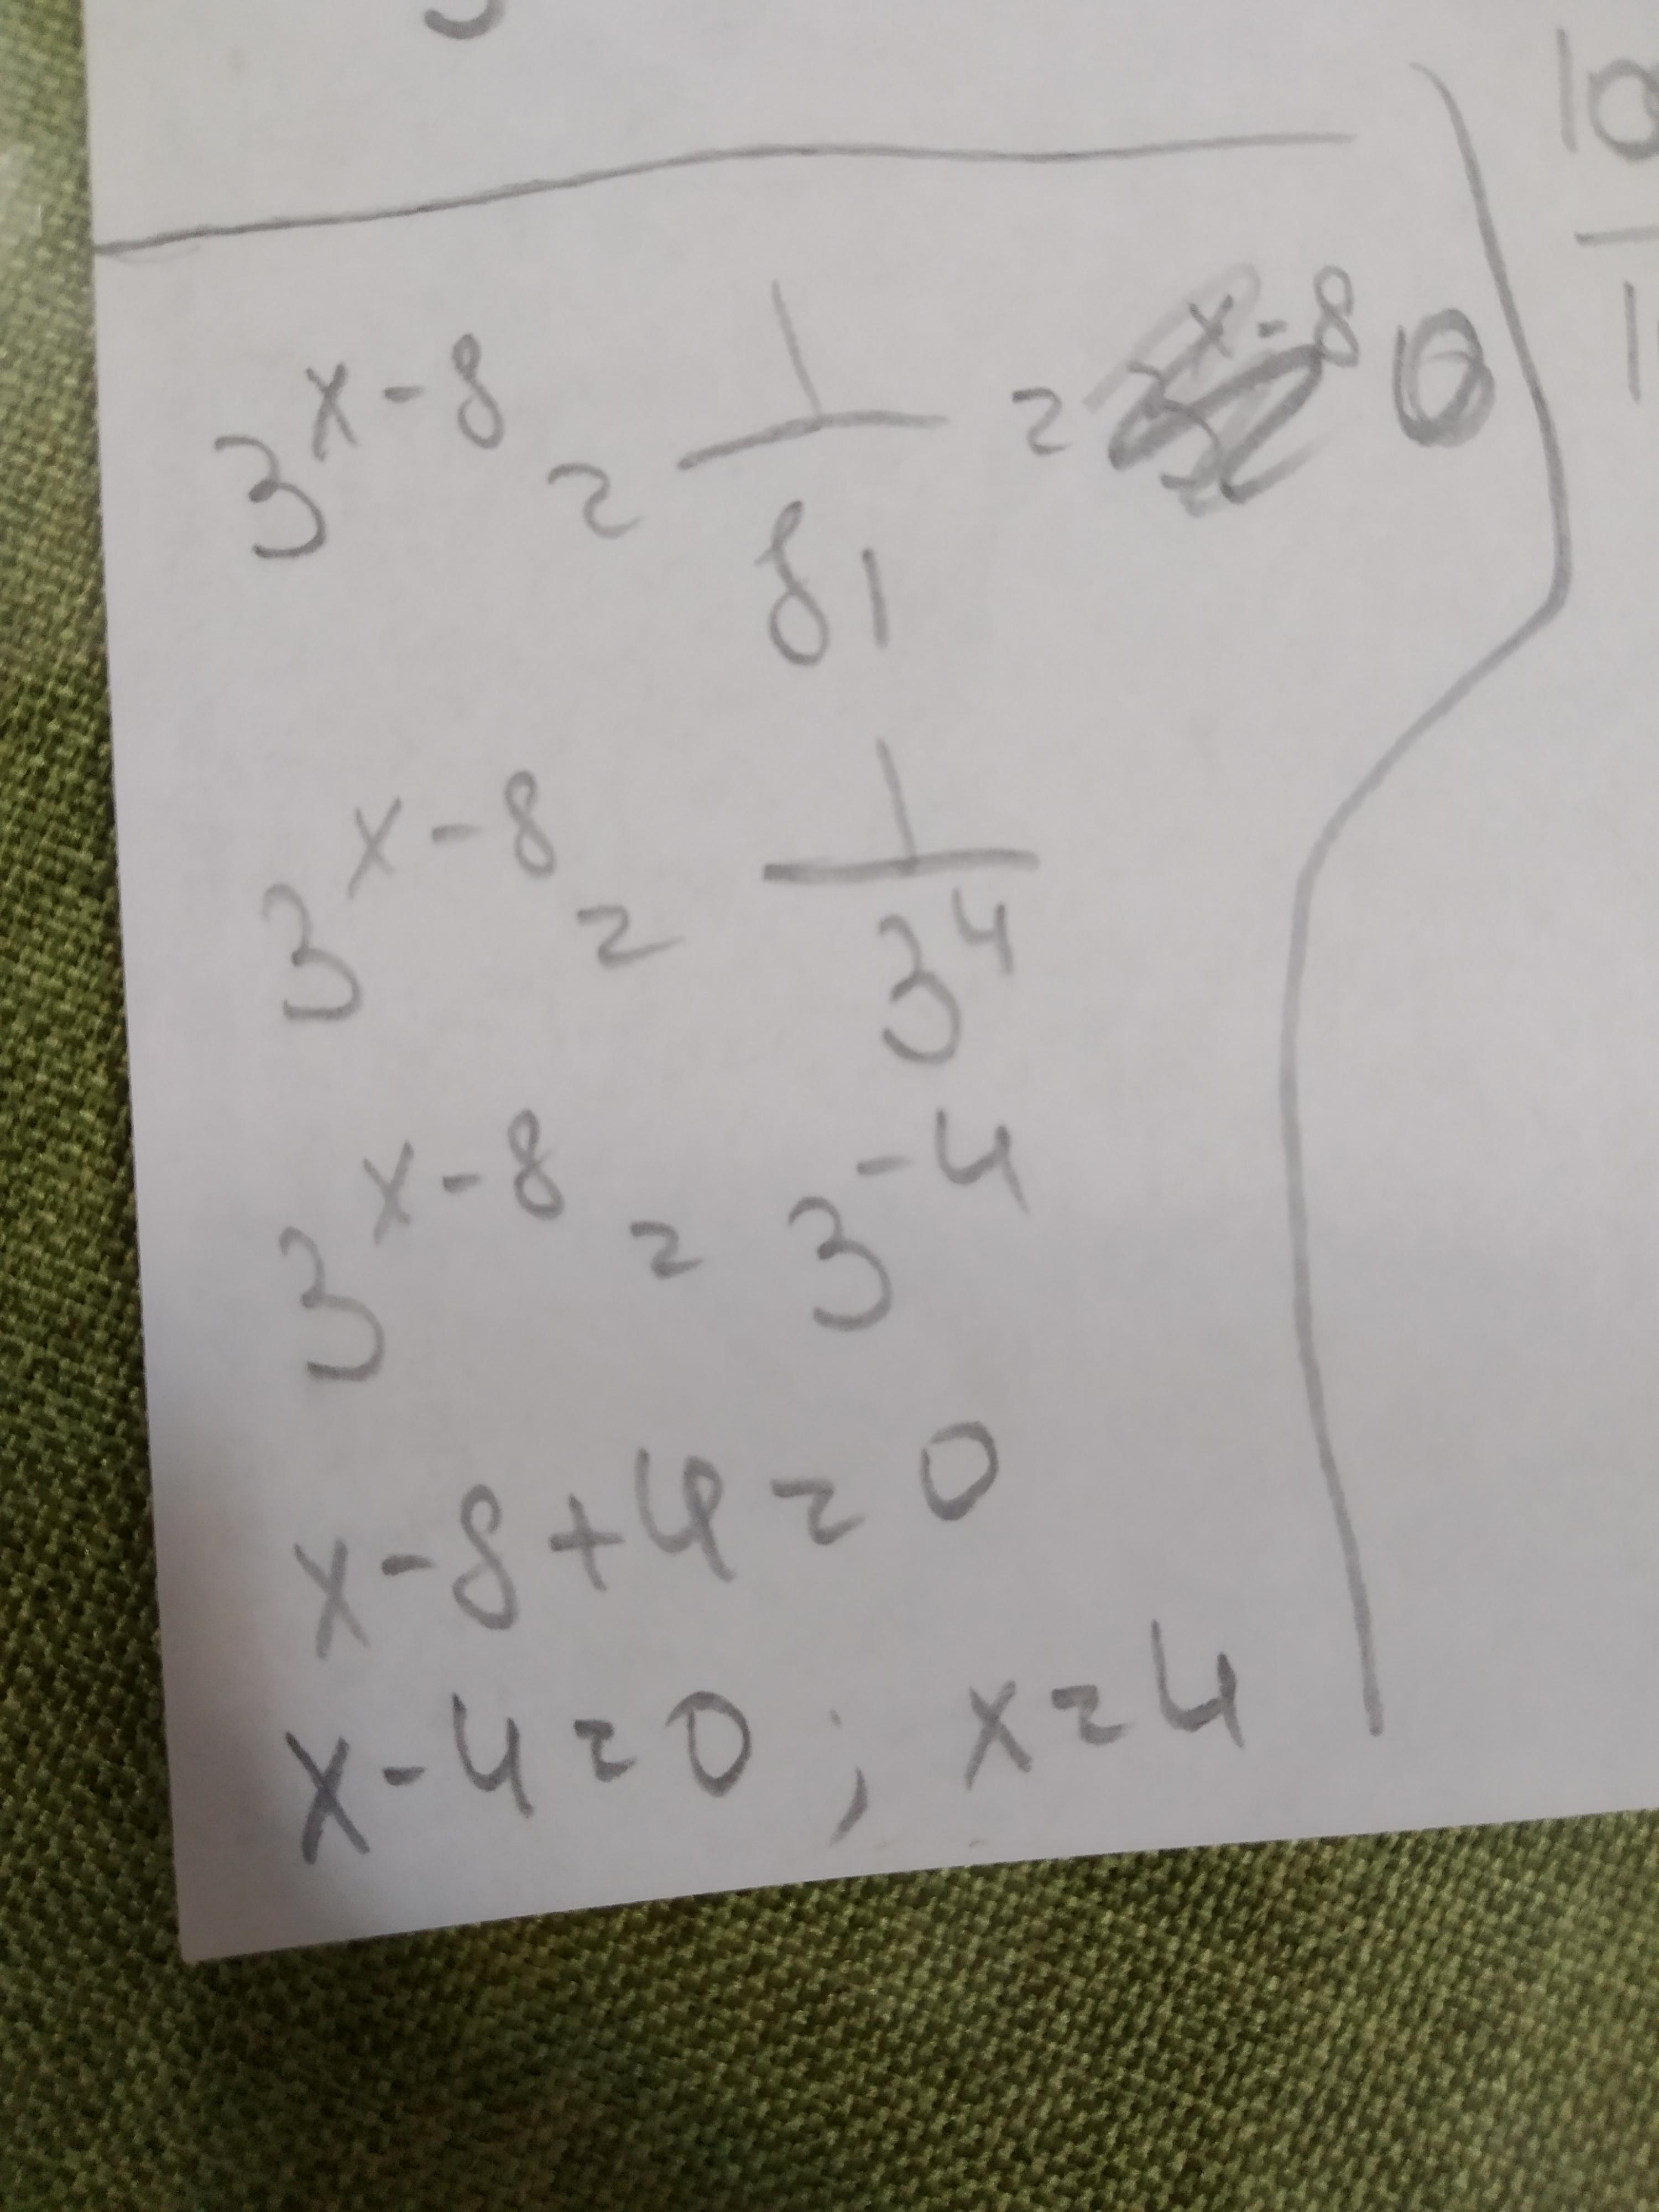 3^{x-8} = \frac{1}{81} =
3^{x-8} = \frac{1}{3^4}
3^{x-8} = 3^{-4}
x-8+4=0
x-4=0; x=4
10
1